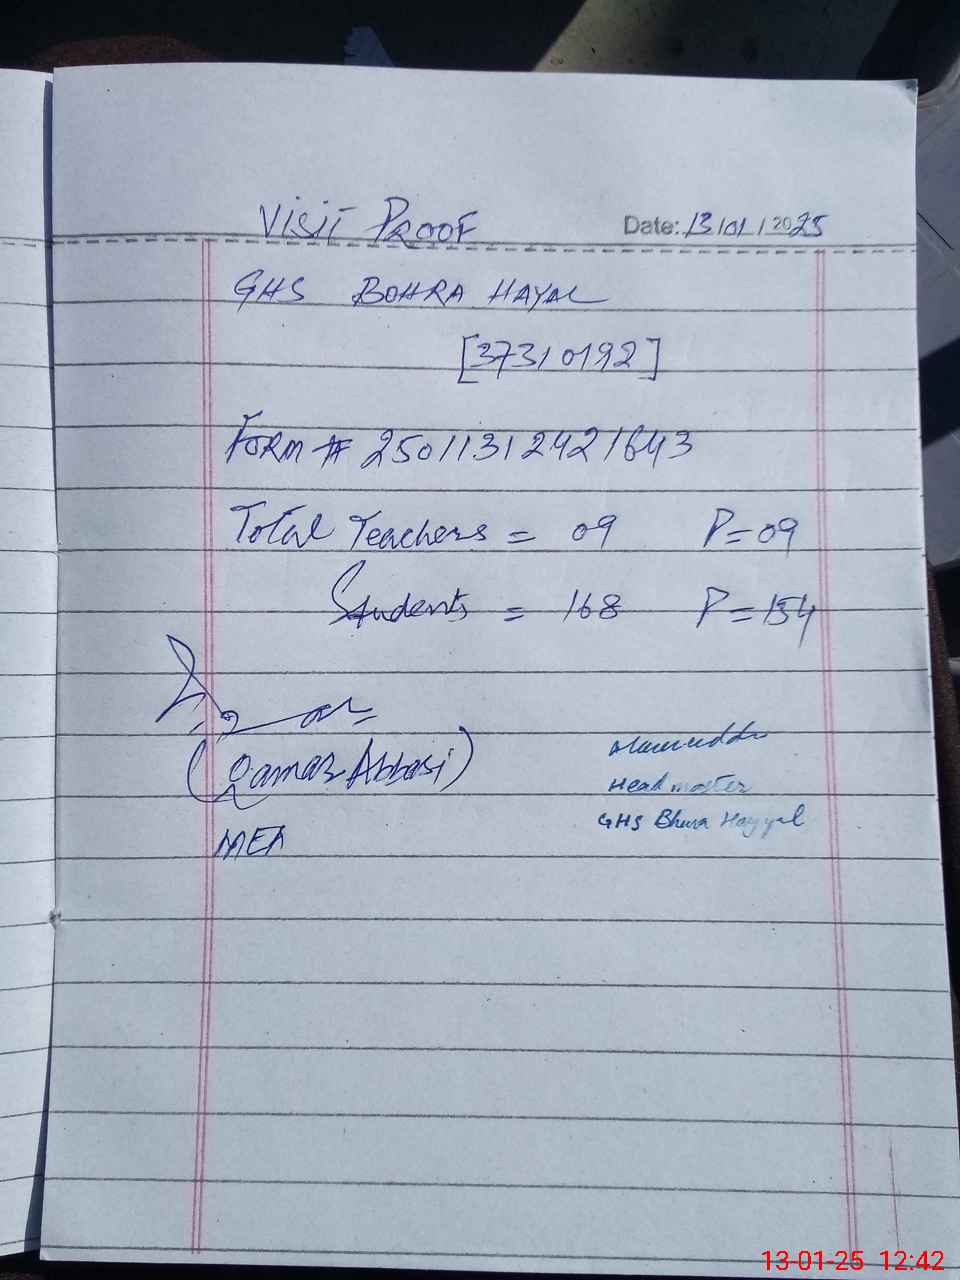 Visit Proof
Date: 13/01/2025
GHS BOHRA HAYAL
[37310192]
Form # 25011312421643
Total Teachers = 09 P=09
Students = 168 P=154
(Qamar Abbasi)
MEA
Head master
GHS Bhura Hayyal
13-01-25 12:42